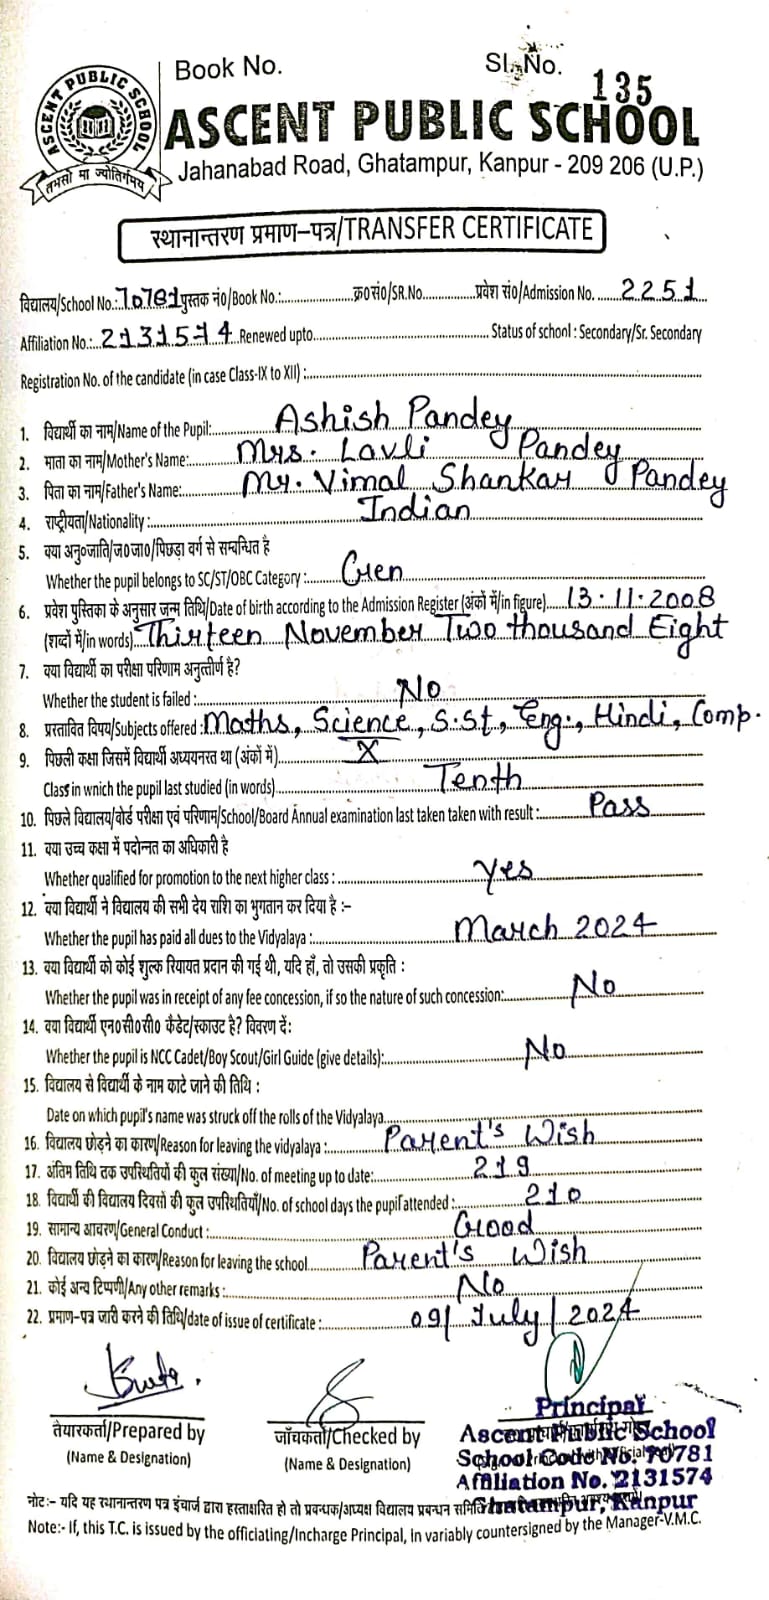 Book No.
Sl. No. 135
ASCENT PUBLIC SCHOOL
तमसो मा ज्योतिर्गमय
ASCENT PUBLIC SCHOOL
Jahanabad Road, Ghatampur, Kanpur - 209 206 (U.P.)
स्थानान्तरण प्रमाण-पत्र/TRANSFER CERTIFICATE
विद्यालय/School No.: 70781 पुस्तक नं0/Book No.:............क्र0सं0/SR.No............प्रवेश सं0/Admission No. ......2251
Affiliation No.:..2131574 Renewed upto............Status of school : Secondary/Sr. Secondary
Registration No. of the candidate (in case Class-IX to XII) :............
1. विद्यार्थी का नाम/Name of the Pupil:............Ashish Pandey
2. माता का नाम/Mother's Name:............Mrs. Lavli Pandey
3. पिता का नाम/Father's Name:............Mr. Vimal Shankar Pandey
4. राष्ट्रीयता/Nationality :............Indian
5. क्या अनु०जाति/ज०जा०/पिछड़ा वर्ग से सम्बन्धित है
Whether the pupil belongs to SC/ST/OBC Category :........Gen
6. प्रवेश पुस्तिका के अनुसार जन्म तिथि/Date of birth according to the Admission Register (अंकों में/in figure).....13.11.2008
(शब्दों में/in words) Thirteen November Two thousand Eight
7. क्या विद्यार्थी का परीक्षा परिणाम अनुत्तीर्ण है?
Whether the student is failed :............No
8. प्रस्तावित विषय/Subjects offered : Maths, Science, S.St, Eng., Hindi, Comp.
9. पिछली कक्षा जिसमें विद्यार्थी अध्ययनरत था (अंकों में)............X
Class in wnich the pupil last studied (in words)............Tenth
10. पिछले विद्यालय/बोर्ड परीक्षा एवं परिणाम/School/Board Annual examination last taken taken with result :............Pass
11. क्या उच्च कक्षा में पदोन्नत का अधिकारी है
Whether qualified for promotion to the next higher class :............Yes
12. क्या विद्यार्थी ने विद्यालय की सभी देय राशि का भुगतान कर दिया है :-
Whether the pupil has paid all dues to the Vidyalaya :............March 2024
13. क्या विद्यार्थी को कोई शुल्क रियायत प्रदान की गई थी, यदि हाँ, तो उसकी प्रकृति :
Whether the pupil was in receipt of any fee concession, if so the nature of such concession:............No
14. क्या विद्यार्थी एन०सी०सी० कैडेट/स्काउट है? विवरण दें:
Whether the pupil is NCC Cadet/Boy Scout/Girl Guide (give details):............No
15. विद्यालय से विद्यार्थी के नाम काटे जाने की तिथि :
Date on which pupil's name was struck off the rolls of the Vidyalaya............
16. विद्यालय छोड़ने का कारण/Reason for leaving the vidyalaya :............Parent's Wish
17. अंतिम तिथि तक उपस्थितियों की कुल संख्या/No. of meeting up to date:............219
18. विद्यार्थी की विद्यालय दिवसों की कुल उपस्थितियाँ/No. of school days the pupil attended :............210
19. सामान्य आचरण/General Conduct :............Good
20. विद्यालय छोड़ने का कारण/Reason for leaving the school............Parent's Wish
21. कोई अन्य टिप्पणी/Any other remarks :............No
22. प्रमाण-पत्र जारी करने की तिथि/date of issue of certificate :............09/July/2024
तैयारकर्ता/Prepared by
(Name & Designation)
जाँचकर्ता/Checked by
(Name & Designation)
Principal
Ascent Public School
School Code No. 70781
Affiliation No. 2131574
Ghatampur, Kanpur
नोट:- यदि यह स्थानान्तरण पत्र इंचार्ज द्वारा हस्ताक्षरित हो तो प्रबन्धक/अध्यक्ष विद्यालय प्रबन्धन
Note:- If, this T.C. is issued by the officiating/Incharge Principal, in variably countersigned by the Manager-V.M.C.